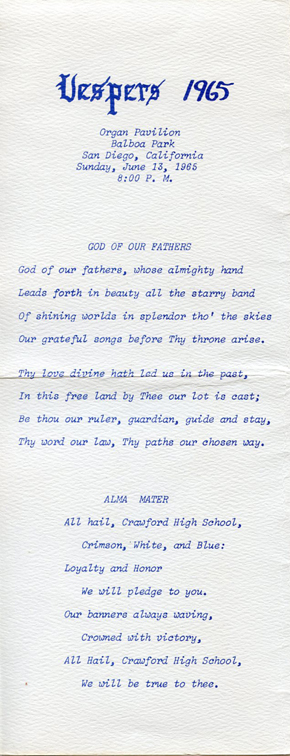 Vespers 1965
Organ Pavilion
Balboa Park
San Diego, California
Sunday, June 13, 1965
8:00 P. M.
GOD OF OUR FATHERS
God of our fathers, whose almighty hand
Leads forth in beauty all the starry band
Of shining worlds in splendor tho' the skies
Our grateful songs before Thy throne arise.
Thy love divine hath led us in the past,
In this free land by Thee our lot is cast;
Be thou our ruler, guardian, guide and stay,
Thy word our law, Thy paths our chosen way.
ALMA MATER
All hail, Crawford High School,
Crimson, White, and Blue:
Loyalty and Honor
We will pledge to you.
Our banners always waving,
Crowned with victory,
All Hail, Crawford High School,
We will be true to thee.